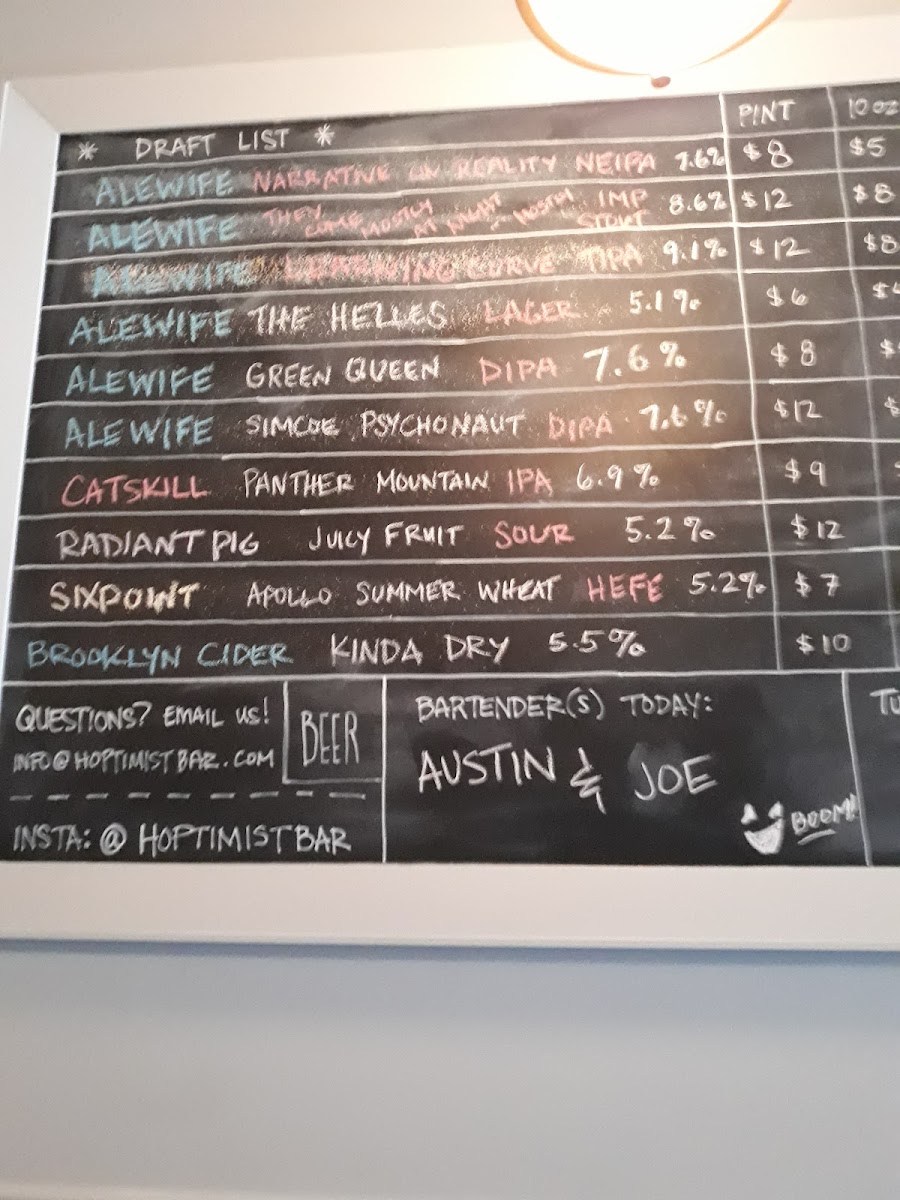 * DRAFT LIST * PINT 10 OZ
ALEWIFE NARRATIVE ON REALITY NEIPA 7.6% $8 $5
ALEWIFE THEY COME MOSTLY AT NIGHT - MOSTLY IMP STOUT 8.6% $12 $8
ALEWIFE LEARNING CURVE TIPA 9.1% $12 $8
ALEWIFE THE HELLES LAGER 5.1% $6 $4
ALEWIFE GREEN QUEEN DIPA 7.6% $8 $
ALEWIFE SIMCOE PSYCHONAUT DIPA 7.6% $12 $
CATSKILL PANTHER MOUNTAIN IPA 6.9% $9
RADIANT PIG JUICY FRUIT SOUR 5.2% $12
SIXPOINT APOLLO SUMMER WHEAT HEFE 5.2% $7
BROOKLYN CIDER KINDA DRY 5.5% $10
QUESTIONS? EMAIL US!
INFO@HOPTIMISTBAR.COM
BEER
INSTA: @HOPTIMISTBAR
BARTENDER(S) TODAY:
AUSTIN & JOE
BOOM!
TU